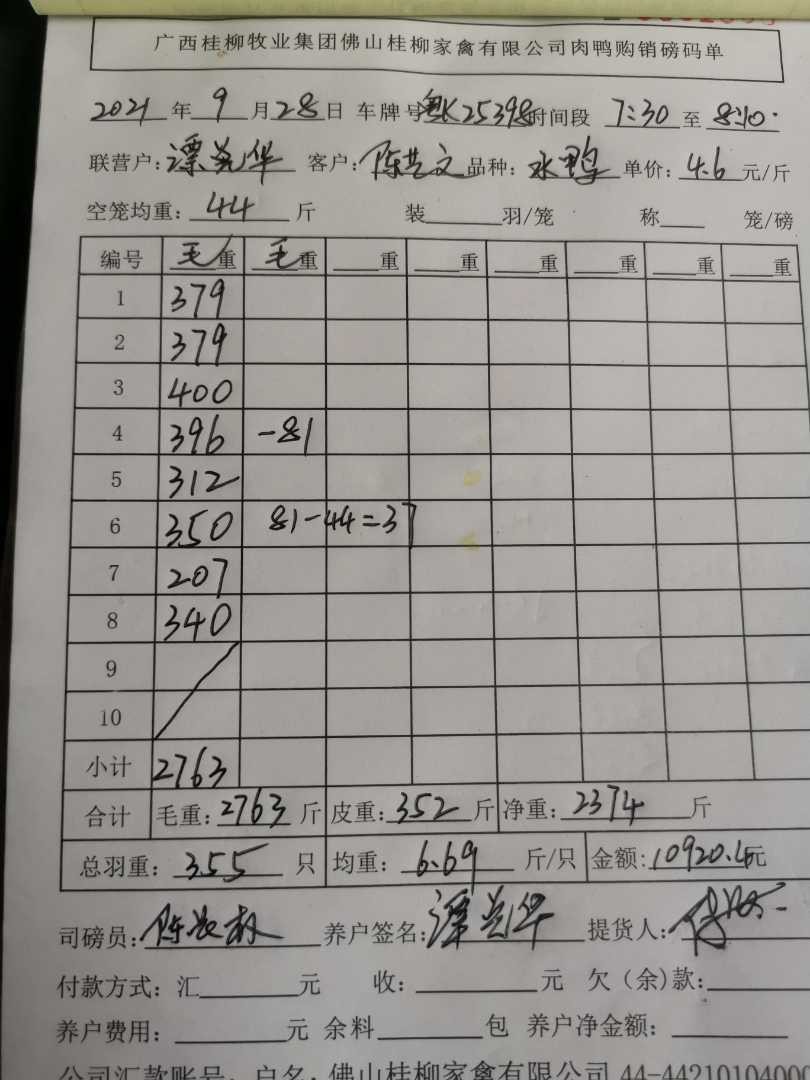 广西桂柳牧业集团佛山桂柳家禽有限公司肉鸭购销磅码单
2021年9月28日 车牌号粤K25398时间段 7:30至8:10
联营户: 谭光华 客户: 陈文品种: 水鸭 单价: 4.6元/斤
空笼均重: 44斤 装 羽/笼 称 笼/磅
编号 毛重 毛重 重 重 重 重 重 重
1 379
2 379
3 400
4 396 -81
5 312
6 350 81-44=37
7 207
8 340
9
10
小计 2763
合计 毛重: 2763斤 皮重: 352斤 净重: 2374斤
总羽重: 355只 均重: 6.69斤/只 金额: 10920.4元
司磅员: 陈 养户签名: 谭光华 提货人:
付款方式: 汇 元 收: 元 欠(余)款:
养户费用: 元 余料 包 养户净金额:
公司汇款账号: 户名: 佛山桂柳家禽有限公司 44-44210104000